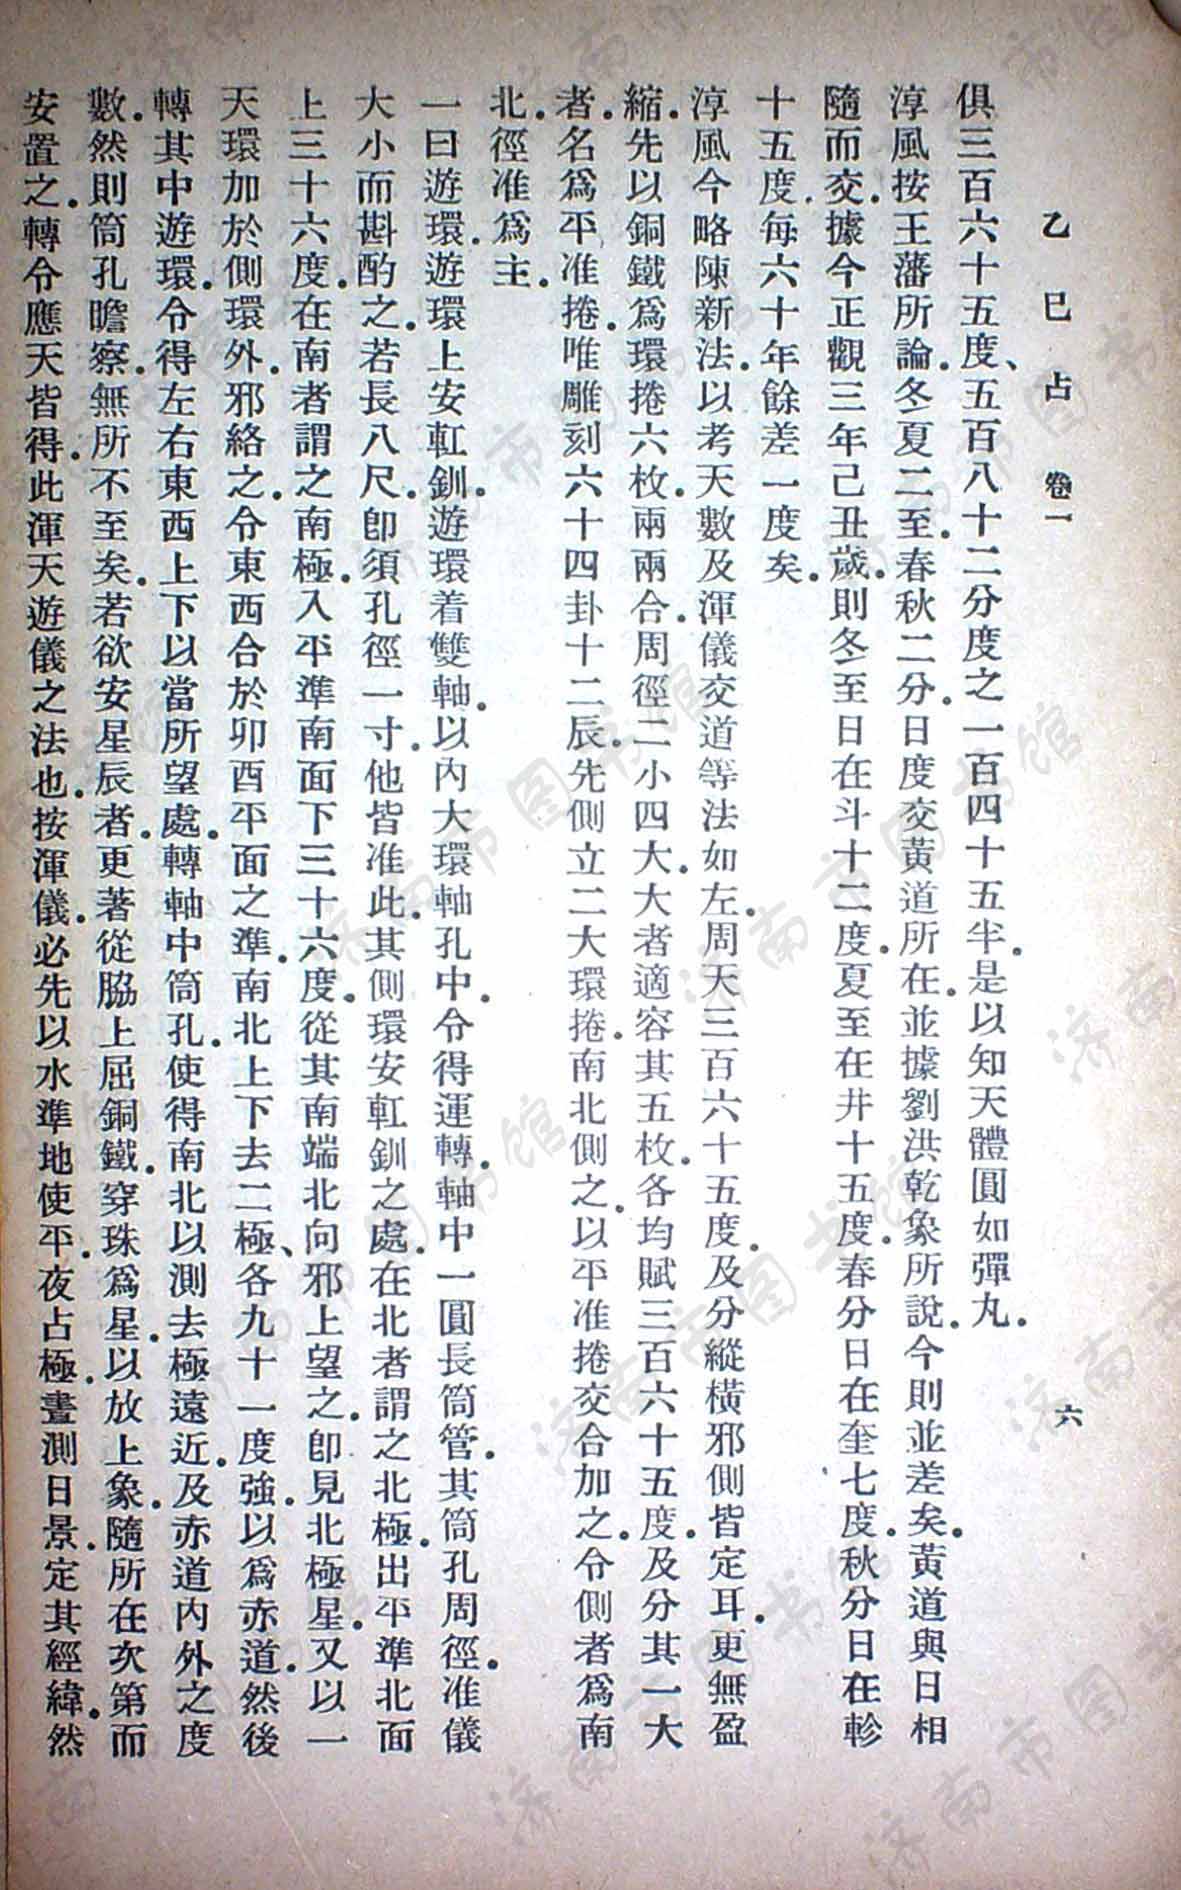 乙巳占 卷一 六
俱三百六十五度、五百八十二分度之一百四十五半.是以知天體圓如彈丸.
淳風按王藩所論.冬夏二至.春秋二分.日度交黃道所在.並據劉洪乾象所說.今則並差矣.黃道與日相
隨而交.據今正觀三年己丑歲.則冬至日在斗十二度.夏至在井十五度.春分日在奎七度.秋分日在軫
十五度.每六十年餘差一度矣.
淳風今略陳新法.以考天數及渾儀交道等法如左.周天三百六十五度.及分縱橫邪側皆定耳.更無盈
縮.先以銅鐵爲環捲六枚.兩兩合.周徑二小四大.大者適容其五枚.各均賦三百六十五度.及分其一大
者.名爲平准捲.唯雕刻六十四卦十二辰.先側立二大環捲.南北側之.以平准捲交合加之.令側者爲南
北.徑准爲主.
一曰遊環.遊環上安軭釧.遊環着雙軸.以內大環軸孔中.令得運轉.軸中一圓長筒管.其筒孔周徑.准儀
大小而斟酌之.若長八尺.卽須孔徑一寸.他皆准此.其側環安軭釧之處.在北者謂之北極.出平準北面
上三十六度.在南者謂之南極.入平準南面下三十六度.從其南端北向邪上望之.卽見北極星.又以一
天環加於側環外.邪絡之.令東西合於卯酉平面之準.南北上下去二極、各九十一度強.以爲赤道.然後
轉其中遊環.令得左右東西上下以當所望處.轉軸中筒孔.使得南北以測去極遠近.及赤道內外之度
數.然則筒孔瞻察.無所不至矣.若欲安星辰者.更著從脇上屈銅鐵.穿珠爲星.以放上象.隨所在次第而
安置之.轉令應天皆得.此渾天遊儀之法也.按渾儀.必先以水準地使平.夜占極.晝測日景.定其經緯.然